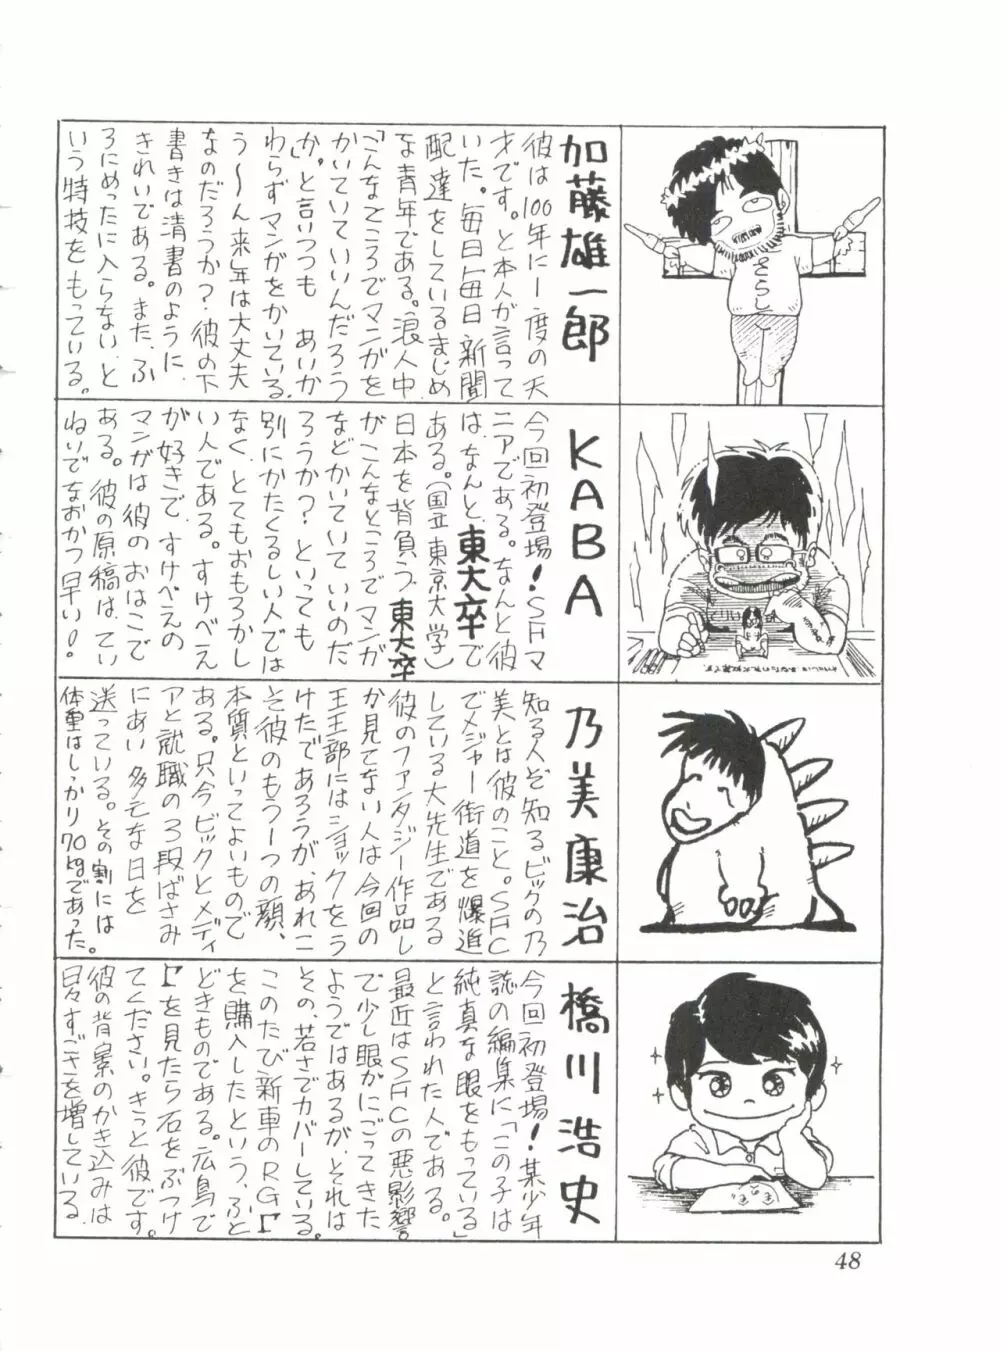 加藤雄一郎
彼は100年に一度の天
才です。と本人が言って
いた。毎日毎日新聞
配達をしているまじめ
な青年である。浪人中
「こんなところでマンガを
かいていていいんだろう
か。」と言いつつも あいか
わらずマンガをかいている。
う〜ん来年は大丈夫
なのだろうか?彼の下
書きは清書のように、
きれいである。また、ふ
ろにめったに入らない、と
いう特技をもっている。
さらし
KABA
今回初登場!SHマ
ニアである。なんと彼
は、なんと、東大卒で
ある。(国立東京大学)
日本を背負う、東大卒
がこんなところでマンガ
などかいていていいのだ
ろうか?といっても
別にかたくるしい人では
なく、とてもおもろかし
い人である。すけべえ
が好きで、すけべえの
マンガは彼のおはこで
ある。彼の原稿は、てい
ねいでなおかつ早い!!
乃美康治
知る人ぞ知るビックの乃
美とは彼のこと。SHC
でメジャー街道を爆進
している大先生である
彼のファンタジー作品し
か見てない人は今回の
王王部にはショックをう
けたであろうが、あれこ
そ彼のもう一つの顔、
本質といってよいもので
ある。只今ビックとメディ
アと就職の3段ばさみ
にあい多元な日を
送っている。その割には
体重はしっかり70kgであった。
橋川浩史
今回初登場!某少年
誌の編集に「この子は
純真な眼をもっている」
と言われた人である。
最近はSHCの悪影響
で少し眼がにごってきた
ようではあるが、それは
その、若さでカバーしている。
このたび新車のRGΓ
を購入したという、ふと
どきものである。広島で
Γを見たら石をぶつけ
てください。きっと彼です。
彼の背景のかき込みは
日々すごさを増している
48